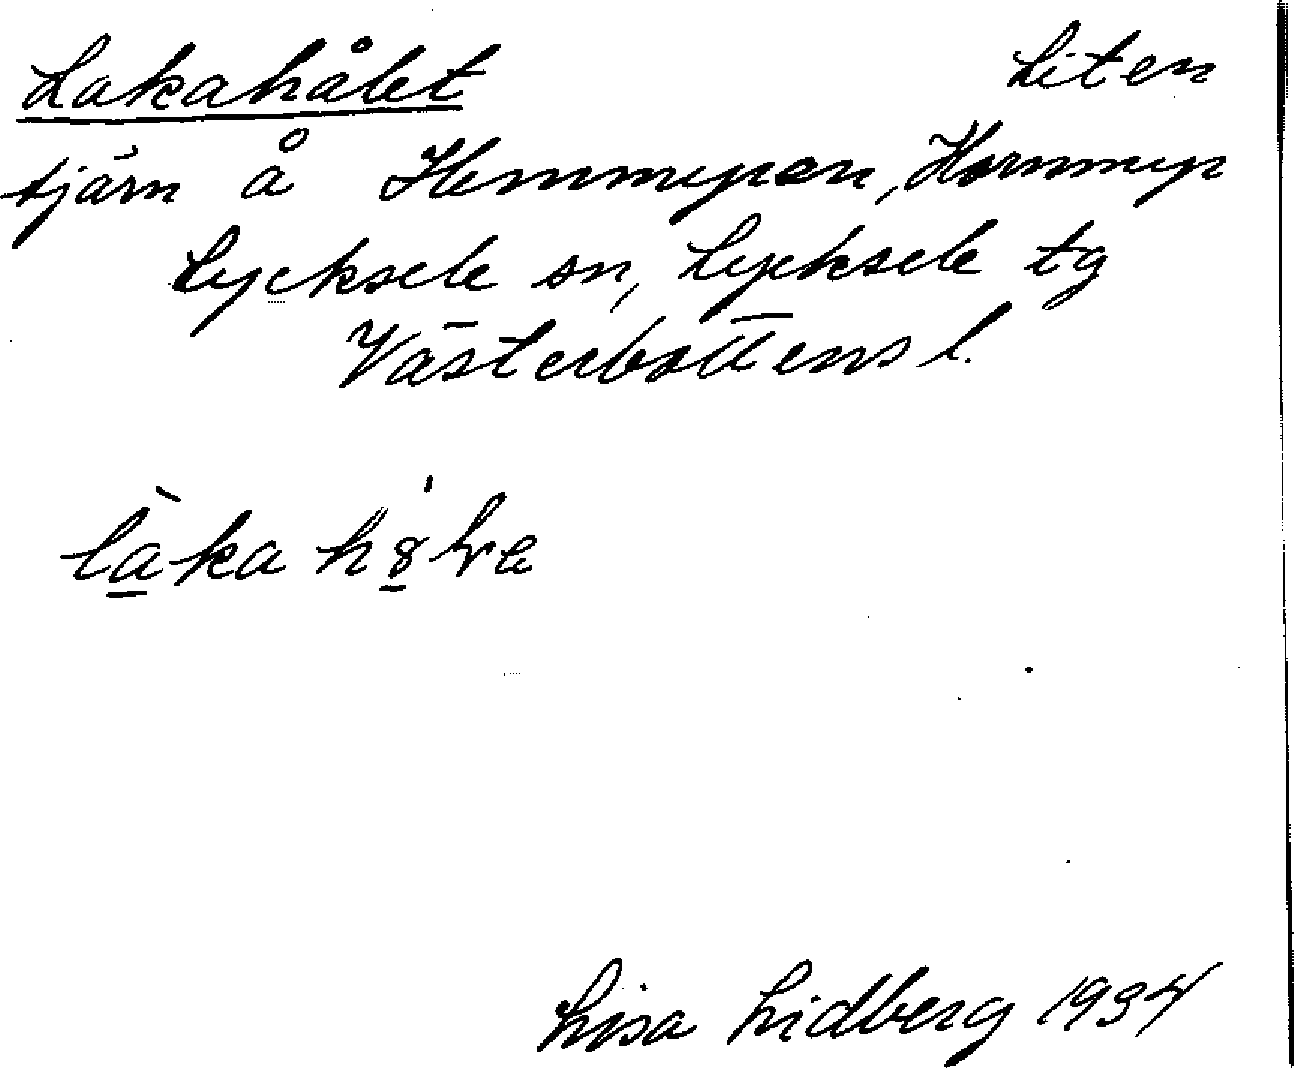 Lakahålet Liten
tjärn å Hemmyran, Hornmyr
Lycksele sn, Lycksele tg
Västerbottens l.
Lisa Lidberg 1934